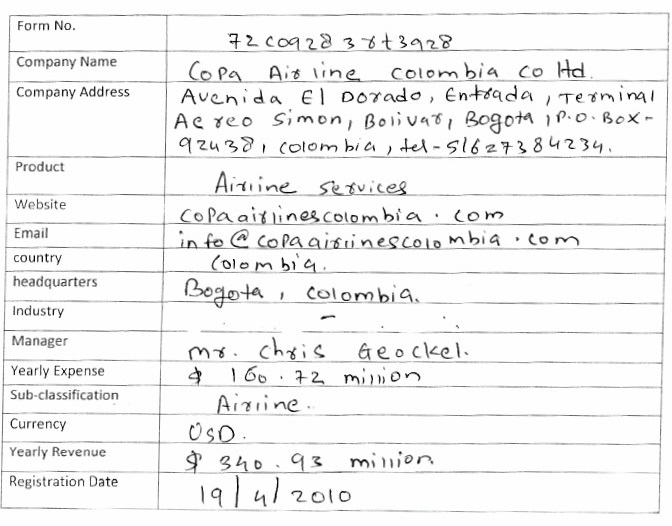 Form No. 72c0928 38t3928
Company Name Copa Airline colombia co ltd.
Company Address Avenida El Dorado, Entrada, Terminal
Aereo Simon, Bolivar, Bogota, P.O. Box-
92438, colombia, tel-51627384234.
Product Airline services
Website copaairlinescolombia.com
Email info@copaairlinescolombia.com
country Colombia.
headquarters Bogota, colombia.
Industry -
Manager mr. Chris Geockel.
Yearly Expense $ 160.72 million
Sub-classification Airline.
Currency USD.
Yearly Revenue $ 340.93 million
Registration Date 19/4/2010